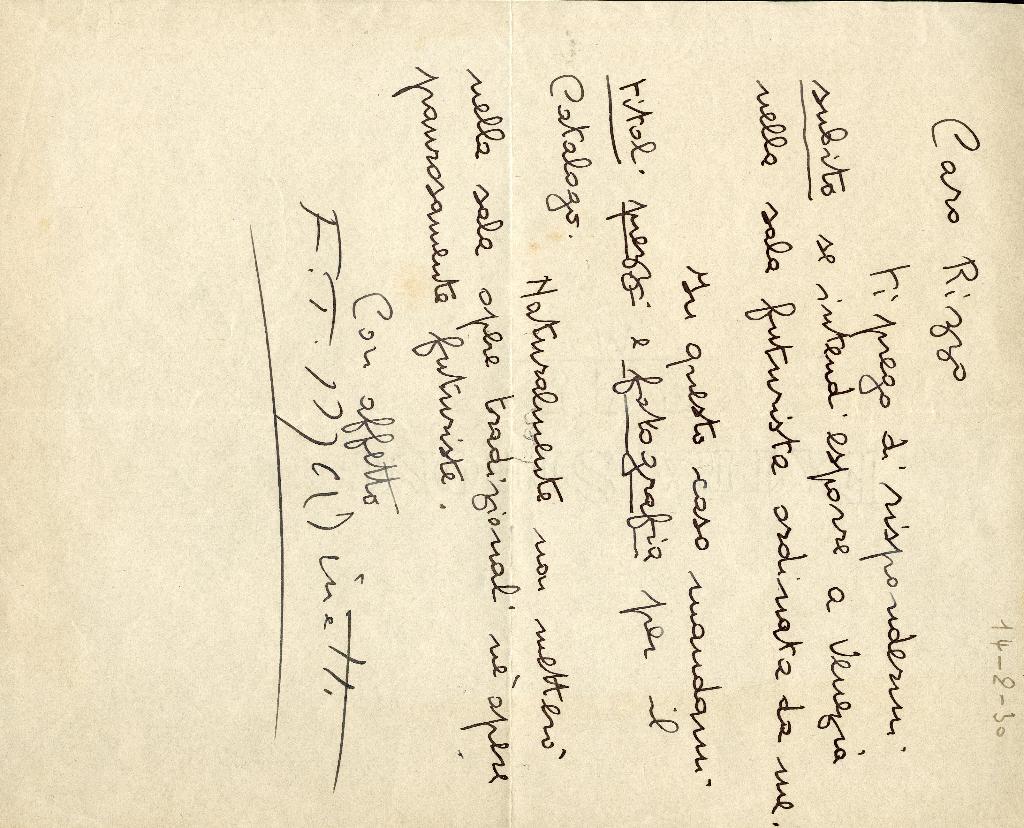 14-2-30
Caro Rizzo
ti prego di rispondermi
subito se intendi esporre a Venezia
nella sala futurista ordinata da me.
In questo caso mandami
titoli prezzi e fotografia per il
Catalogo.
Naturalmente non metterò
nella sala opere tradizionali nè opere
paurosamente futuriste.
Con affetto
F. T. Marinetti